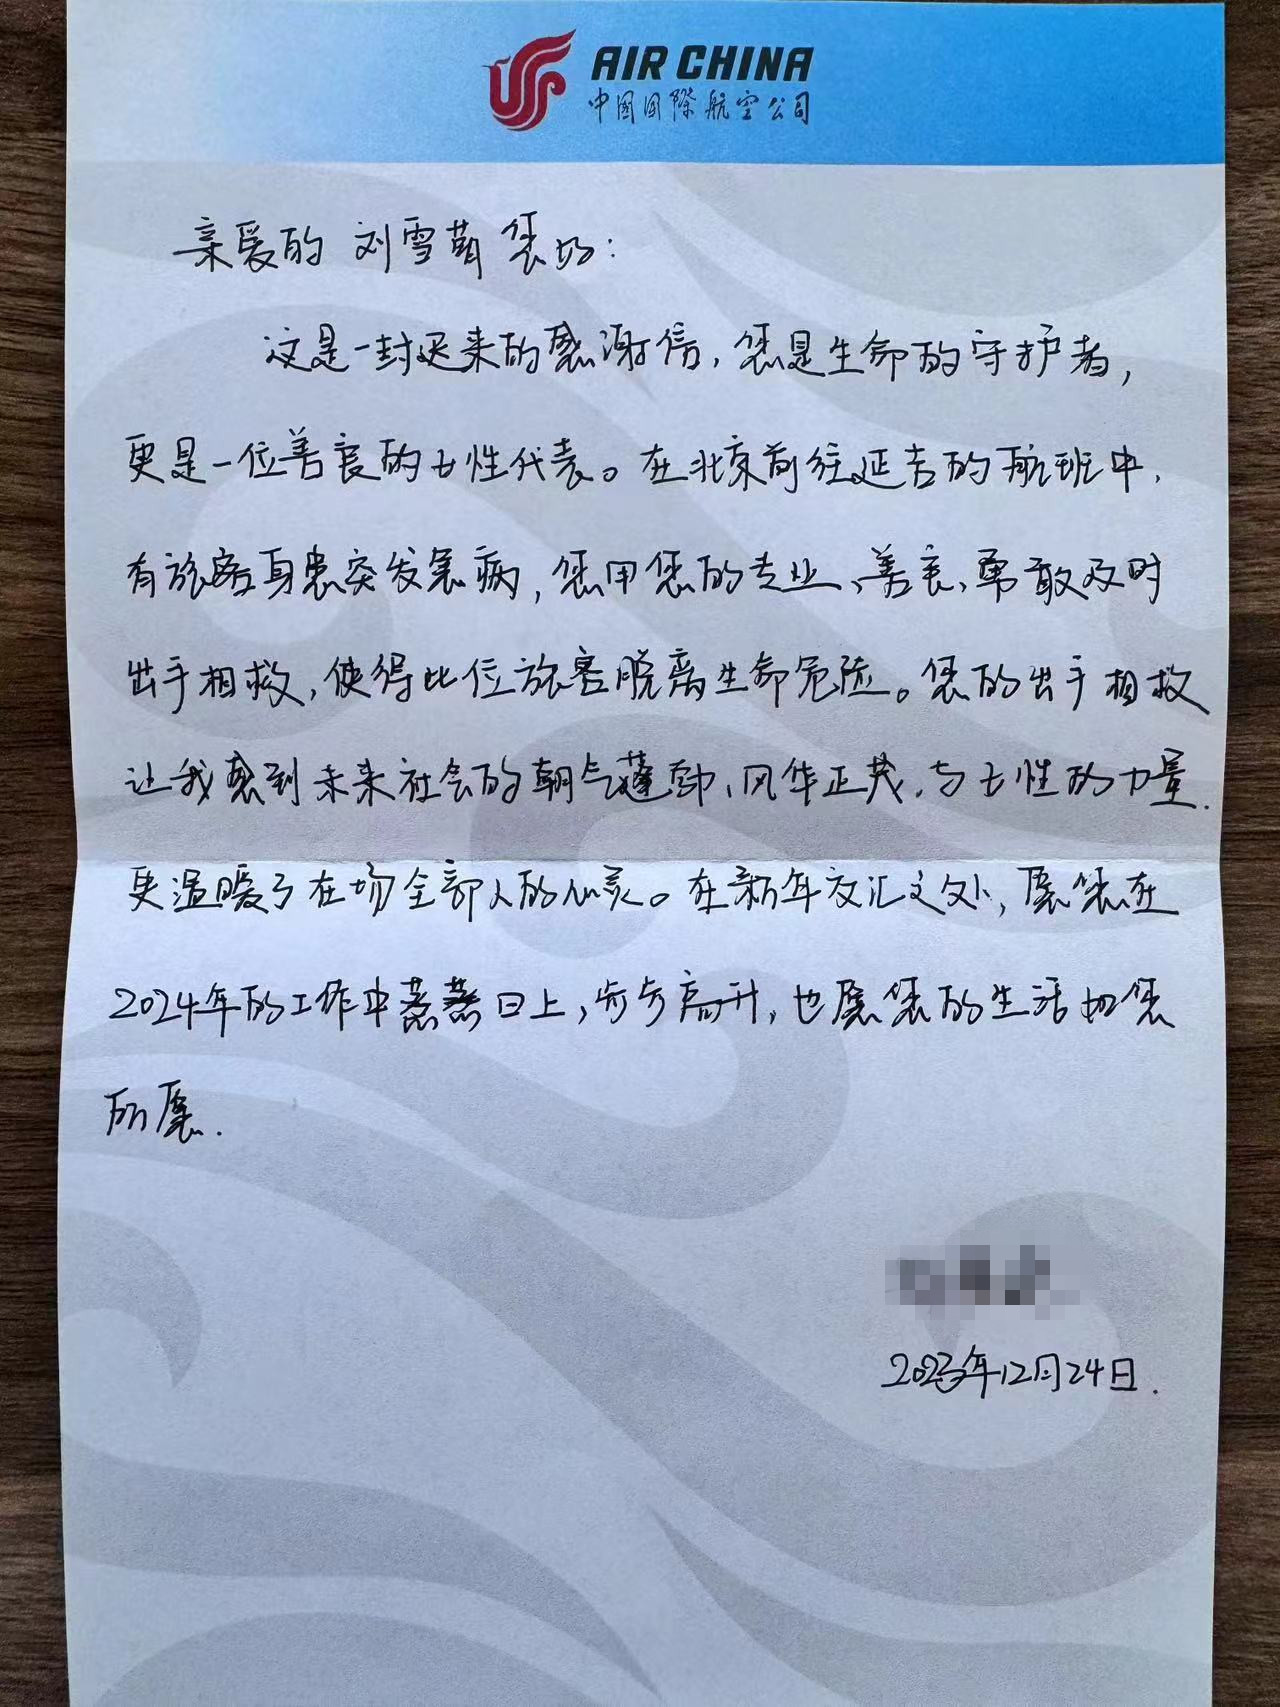 AIR CHINA
中国国際航空公司
亲爱的 刘雪萌 您好：
这是一封迟来的感谢信，您是生命的守护者，
更是一位善良的女性代表。在北京前往延吉的航班中，
有旅客身患突发急病，您用您的专业、善良、勇敢及时
出手相救，使得此位旅客脱离生命危险。您的出手相救
让我感到未来社会的朝气蓬勃、风华正茂，与女性的力量.
更温暖了在场全部人的心灵。在新年交汇之处，愿您在
2024年的工作中蒸蒸日上，步步高升，也愿您的生活如您
所愿.
2023年12月24日.